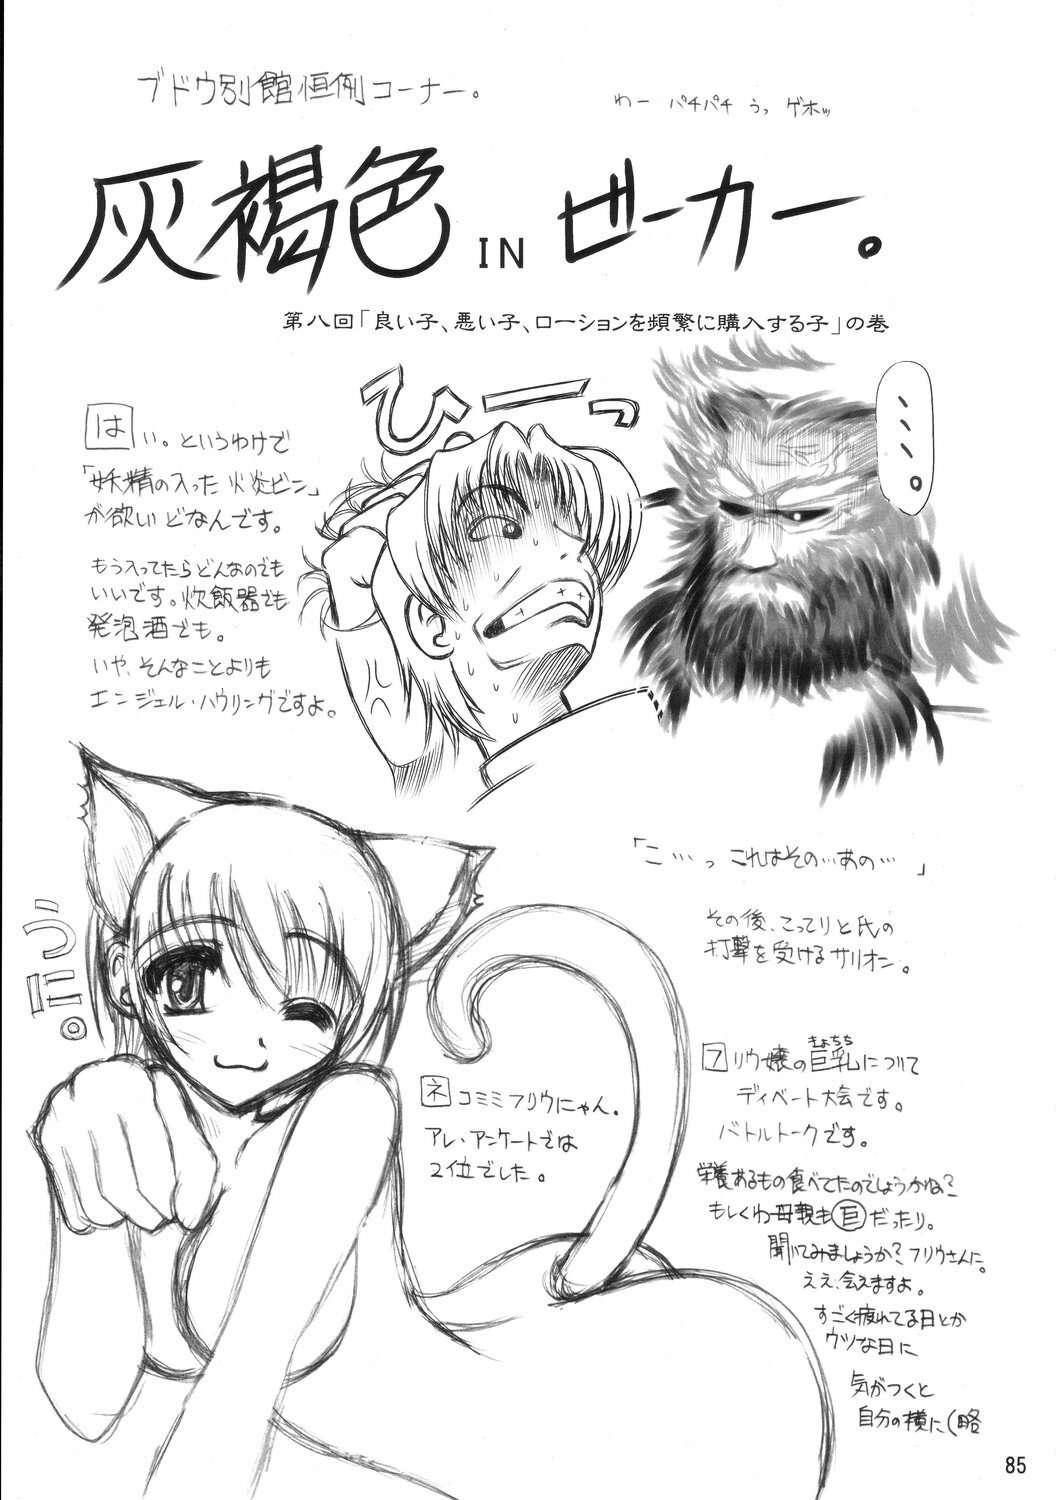 ブドウ別館恒例コーナー。
わー パチパチ うっ ゲホッ
灰褐色 IN ビーカー。
第八回「良い子、悪い子、ローションを頻繁に購入する子」の巻
はい。というわけで
「妖精の入った火炎ビン」
が欲いどなんです。
もう入ってたらどんなのでも
いいです。炊飯器でも
発泡酒でも。
いや、そんなことよりも
エンジェル・ハウリングですよ。
ひーっ
、、、、。
「こ…っ これはその…あの…」
その後、こってりと氏の
打撃を受けるサリオン。
うに。
ネコミミフリウにゃん。
アレ・アンケートでは
2位でした。
フリウ嬢の巨乳について
きょちち
ディベート大会です。
バトルトークです。
栄養あるもの食べてたのでしょうかね?
もしくわ母親も巨だったり。
聞いてみましょうか?フリウさんに。
ええ、会えますよ。
すごく疲れてる日とか
ウツな日に
気がつくと
自分の横に(略
85